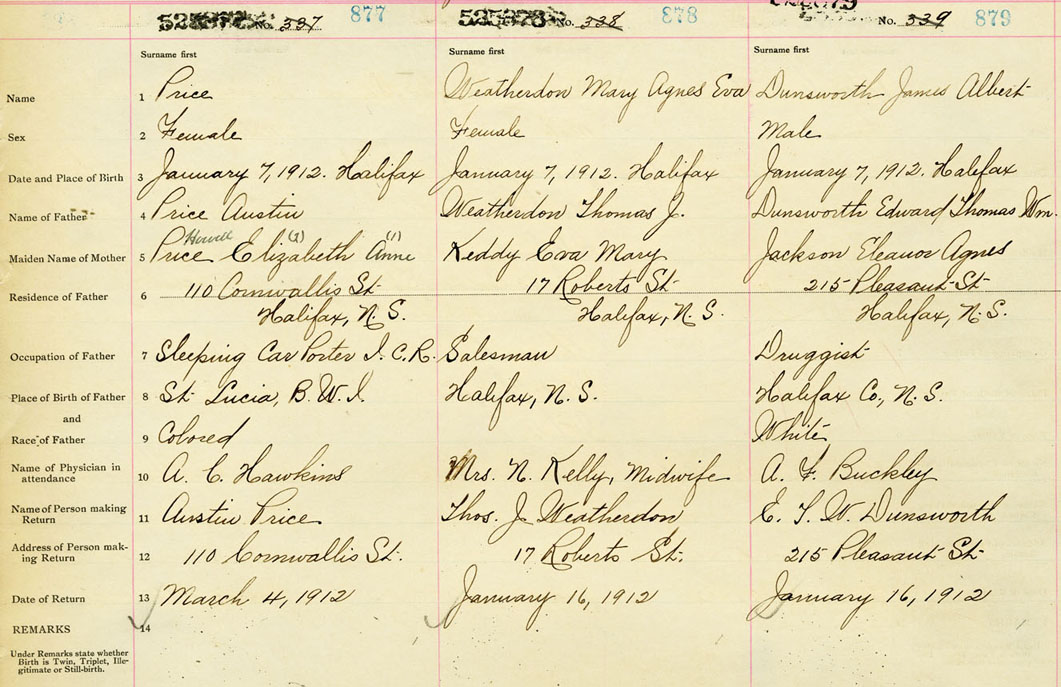 No. 337 877 No. 338 878 No. 339 879
Surname first Surname first Surname first
Name 1 Price Weatherdon Mary Agnes Eva Dunsworth James Albert
Sex 2 Female Female Male
Date and Place of Birth 3 January 7, 1912. Halifax January 7, 1912. Halifax January 7, 1912. Halifax
Name of Father 4 Price Austin Weatherdon Thomas J. Dunsworth Edward Thomas Wm.
Howell (2) (1)
Maiden Name of Mother 5 Price Elizabeth Anne Keddy Eva Mary Jackson Eleanor Agnes
Residence of Father 6 110 Cornwallis St 17 Roberts St 215 Pleasant St
Halifax, N.S. Halifax, N.S. Halifax, N.S.
Occupation of Father 7 Sleeping Car Porter I.C.R. Salesman Druggist
Place of Birth of Father 8 St. Lucia, B.W.I. Halifax, N.S. Halifax Co., N.S.
and
Race of Father 9 Colored White
Name of Physician in
attendance 10 A. C. Hawkins Mrs. N. Kelly, Midwife A. F. Buckley
Name of Person making
Return 11 Austin Price Thos. J. Weatherdon E. T. W. Dunsworth
Address of Person mak-
ing Return 12 110 Cornwallis St. 17 Roberts St. 215 Pleasant St
Date of Return 13 March 4, 1912 January 16, 1912 January 16, 1912
REMARKS 14
Under Remarks state whether
Birth is Twin, Triplet, Ille-
gitimate or Still-birth.